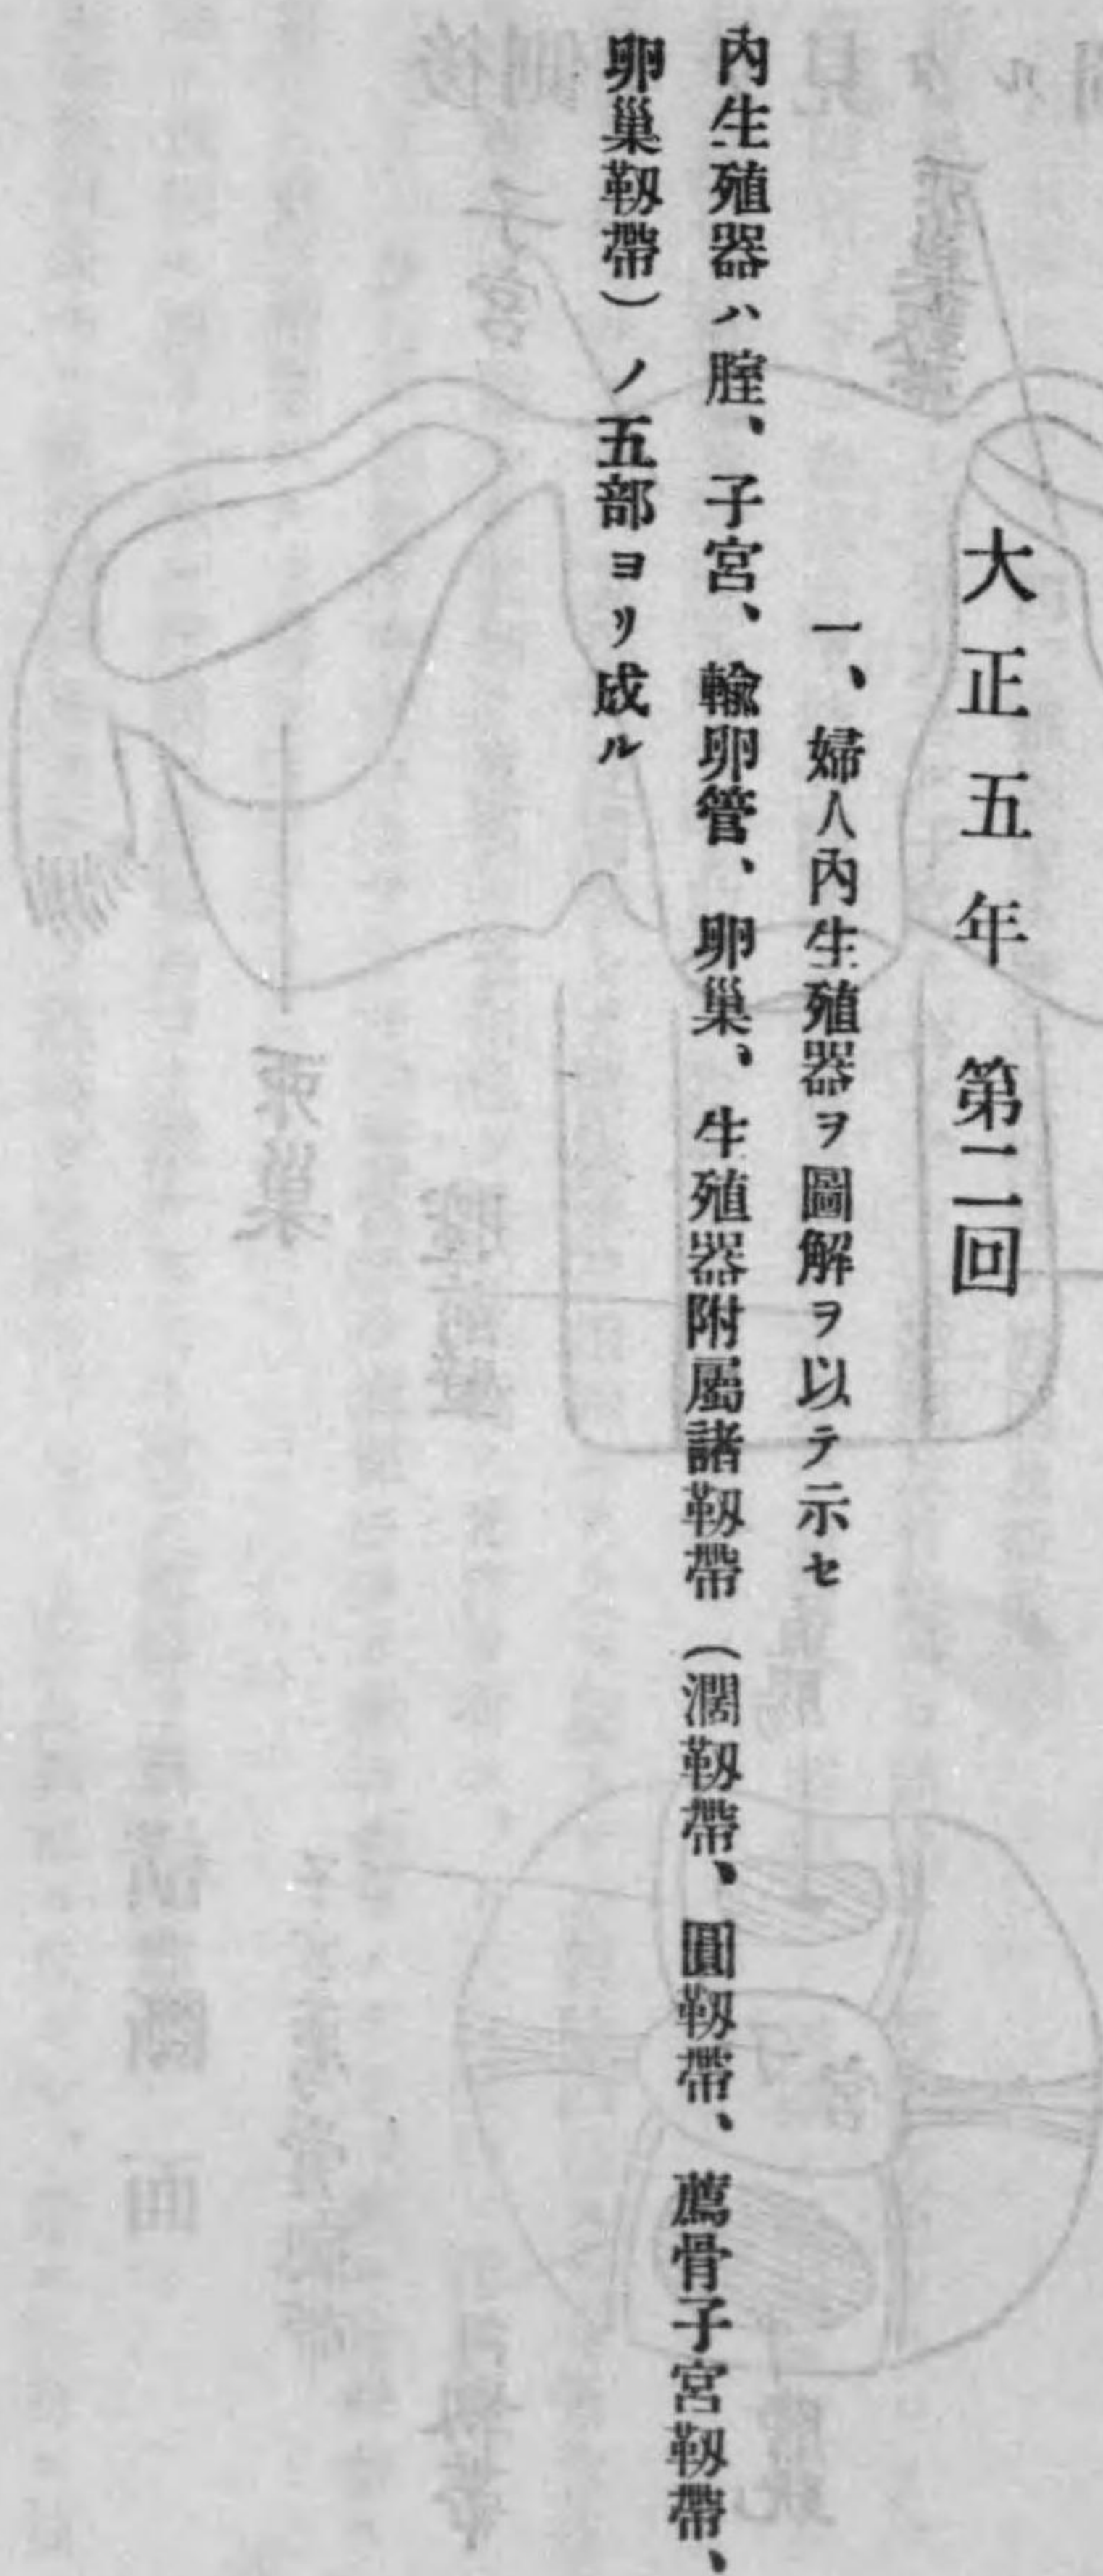 大正五年　第二回
一、婦人內生殖器ヲ圖解ヲ以テ示セ
內生殖器ハ腟、子宮、輸卵管、卵巢、生殖器附屬諸靱帶（濶靱帶、圓靱帶、薦骨子宮靱帶、
卵巢靱帶）ノ五部ヨリ成ル